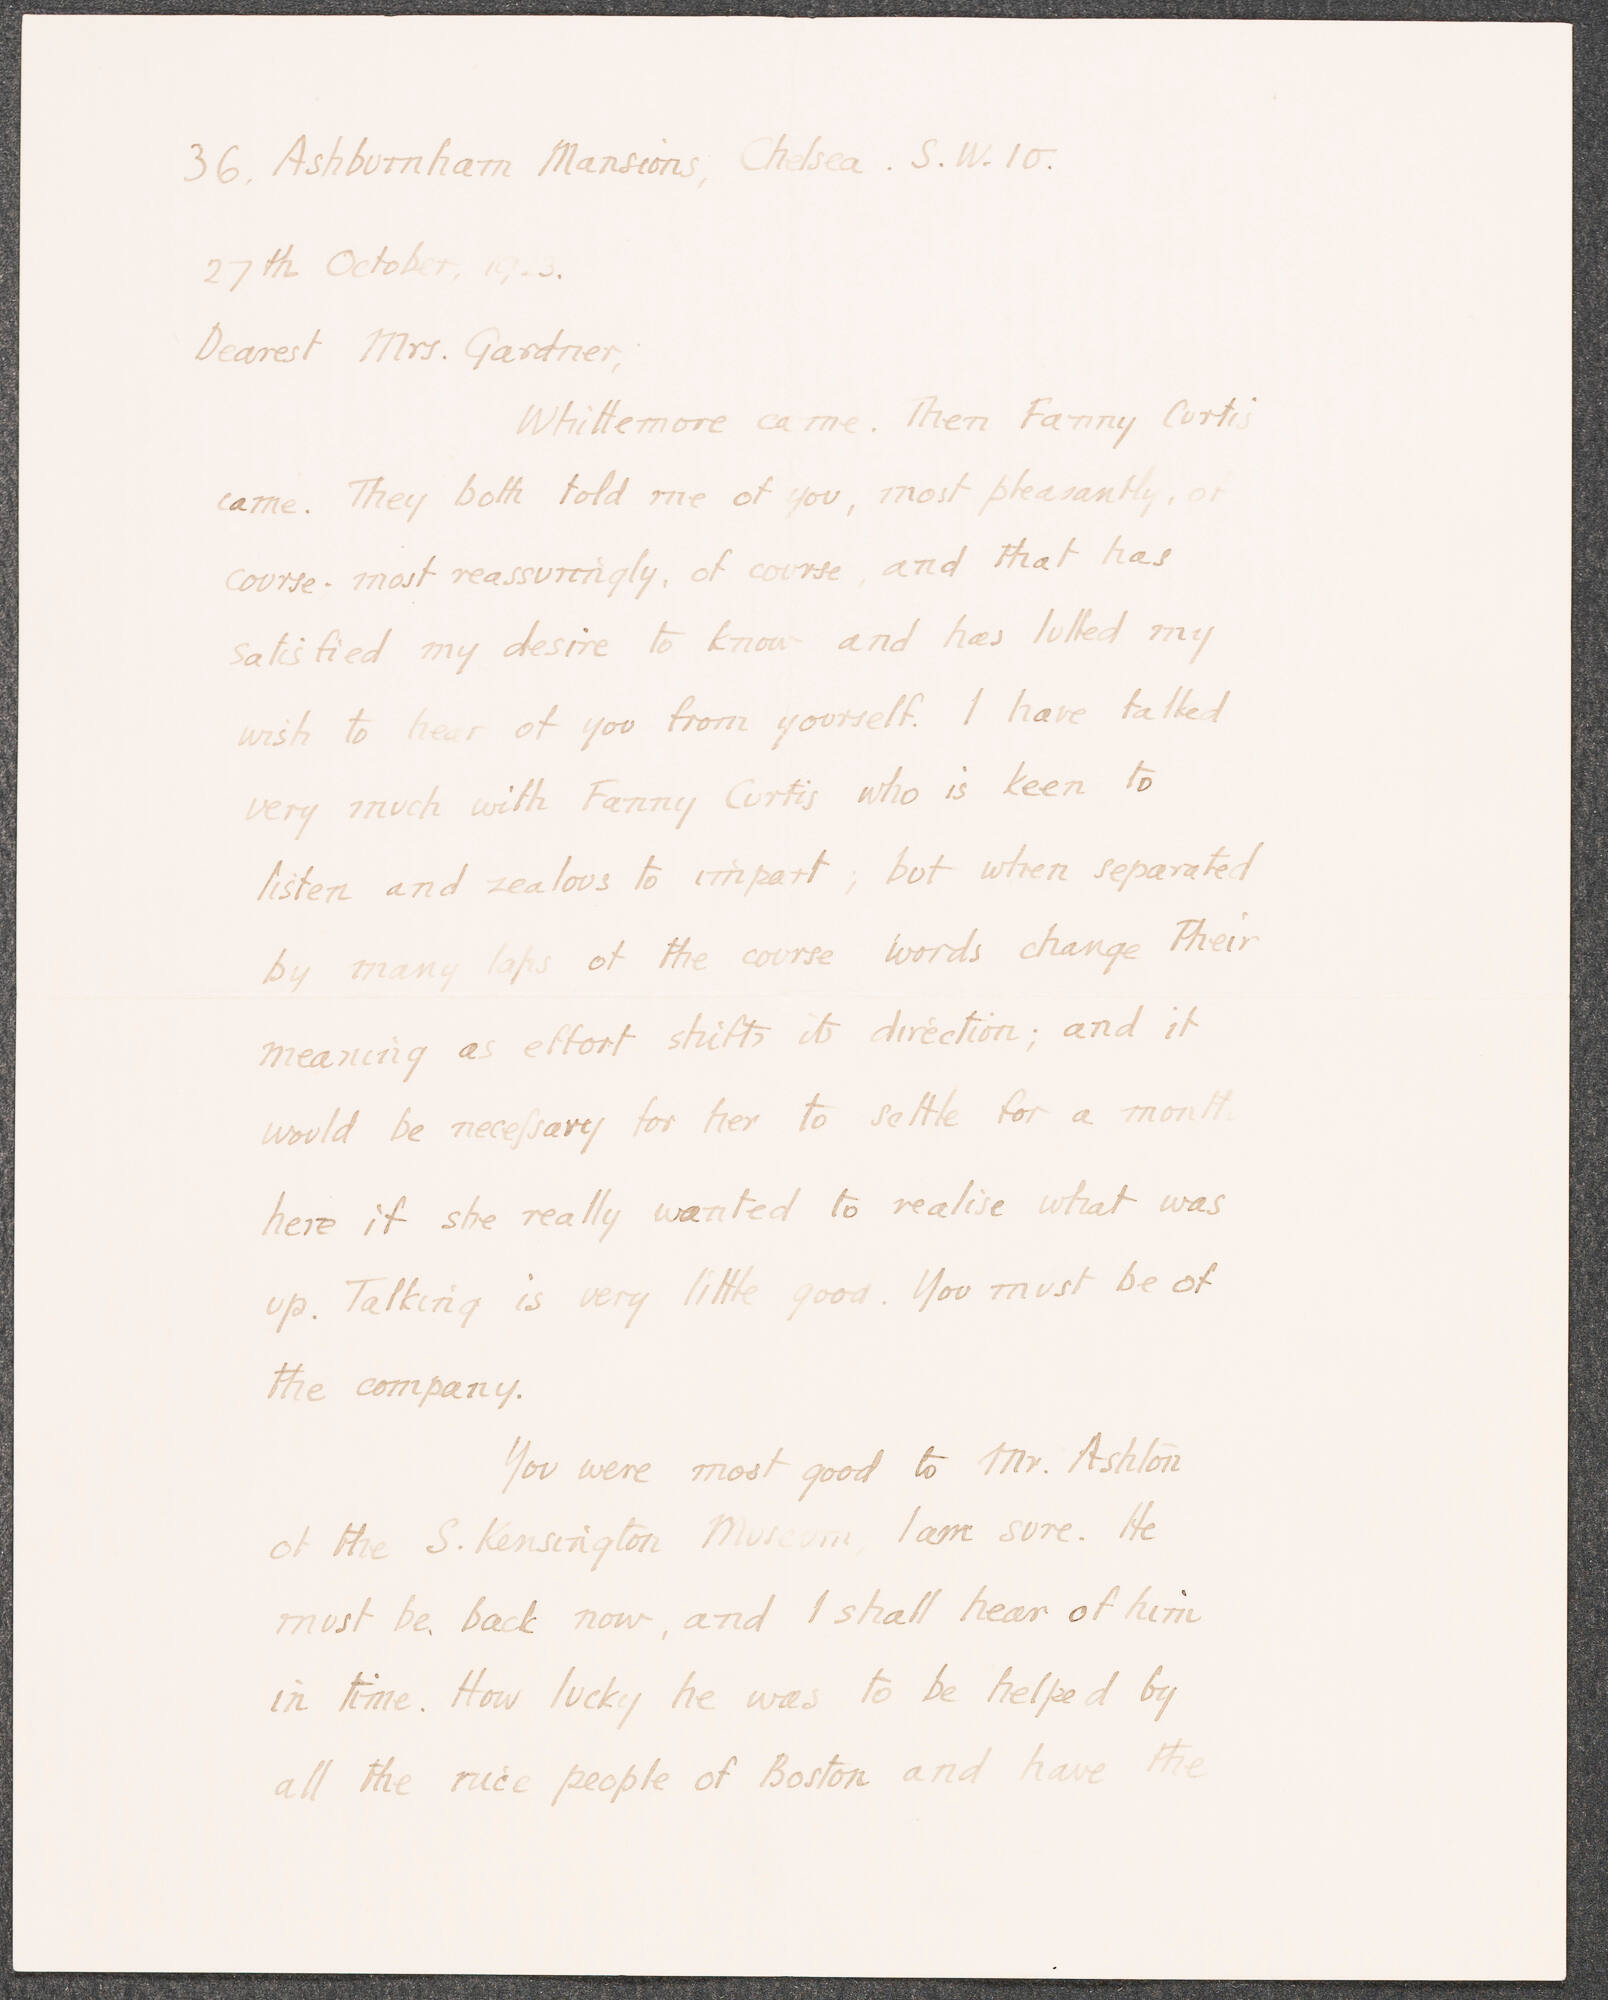 36, Ashburnham Mansions, Chelsea. S.W.10.
27th October, 1923.
Dearest Mrs. Gardner,
Whittemore came. Then Fanny Curtis
came. They both told me of you, most pleasantly, of
course. most reassuringly, of course, and that has
satisfied my desire to know and has lulled my
wish to hear of you from yourself. I have talked
very much with Fanny Curtis who is keen to
listen and zealous to impart; but when separated
by many laps of the course words change their
meaning as effort shifts its direction; and it
would be neceſsary for her to settle for a month
here if she really wanted to realise what was
up. Talking is very little good. You must be of
the company.
You were most good to Mr. Ashton
of the S. Kensington Museum, I am sure. He
must be back now, and I shall hear of him
in time. How lucky he was to be helped by
all the nice people of Boston and have the